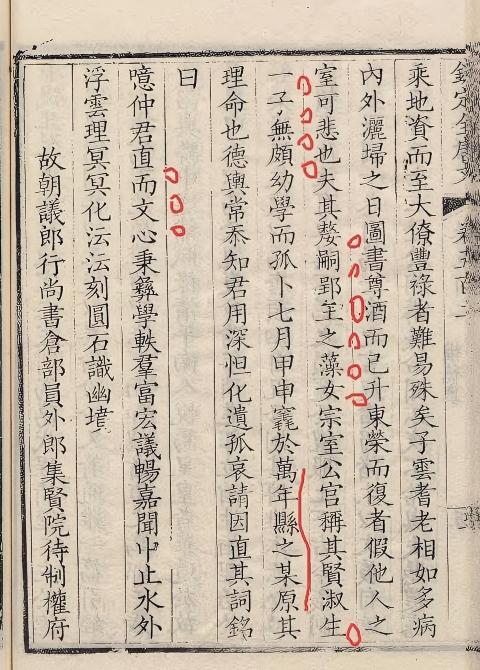 欽定全唐文 卷五百二
乘地資而至大僚豐祿者難易殊矣子雲耆老相如多病
內外灑埽之日圖書尊酒而已升東榮而復者假他人之
室可悲也夫其嫠嗣郢至之藻女宗室公官稱其賢淑生
一子無頗幼學而孤卜七月甲申竁於萬年縣之某原其
理命也德輿常忝知君用深怛化遺孤哀請因直其詞銘
曰
噫仲君直而文心秉彝學軼羣富宏議暢嘉聞中止水外
浮雲理冥冥化沄沄刻圓石識幽墳
故朝議郎行尚書倉部員外郎集賢院待制權府